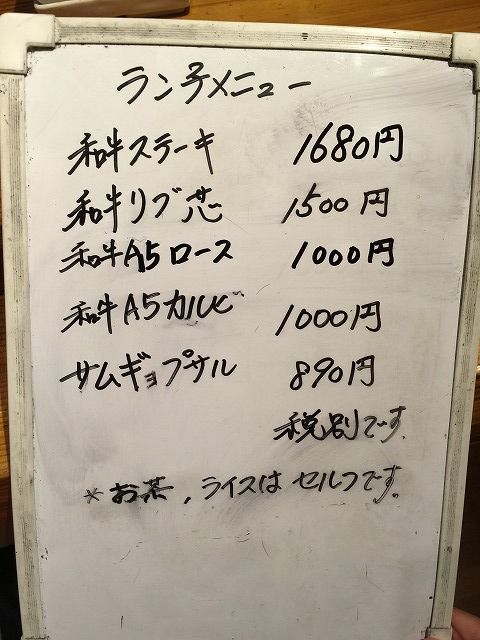 ランチメニュー
和牛ステーキ 1680円
和牛リブ芯 1500円
和牛A5ロース 1000円
和牛A5カルビ 1000円
サムギョプサル 890円
税別です
*お茶,ライスはセルフです。